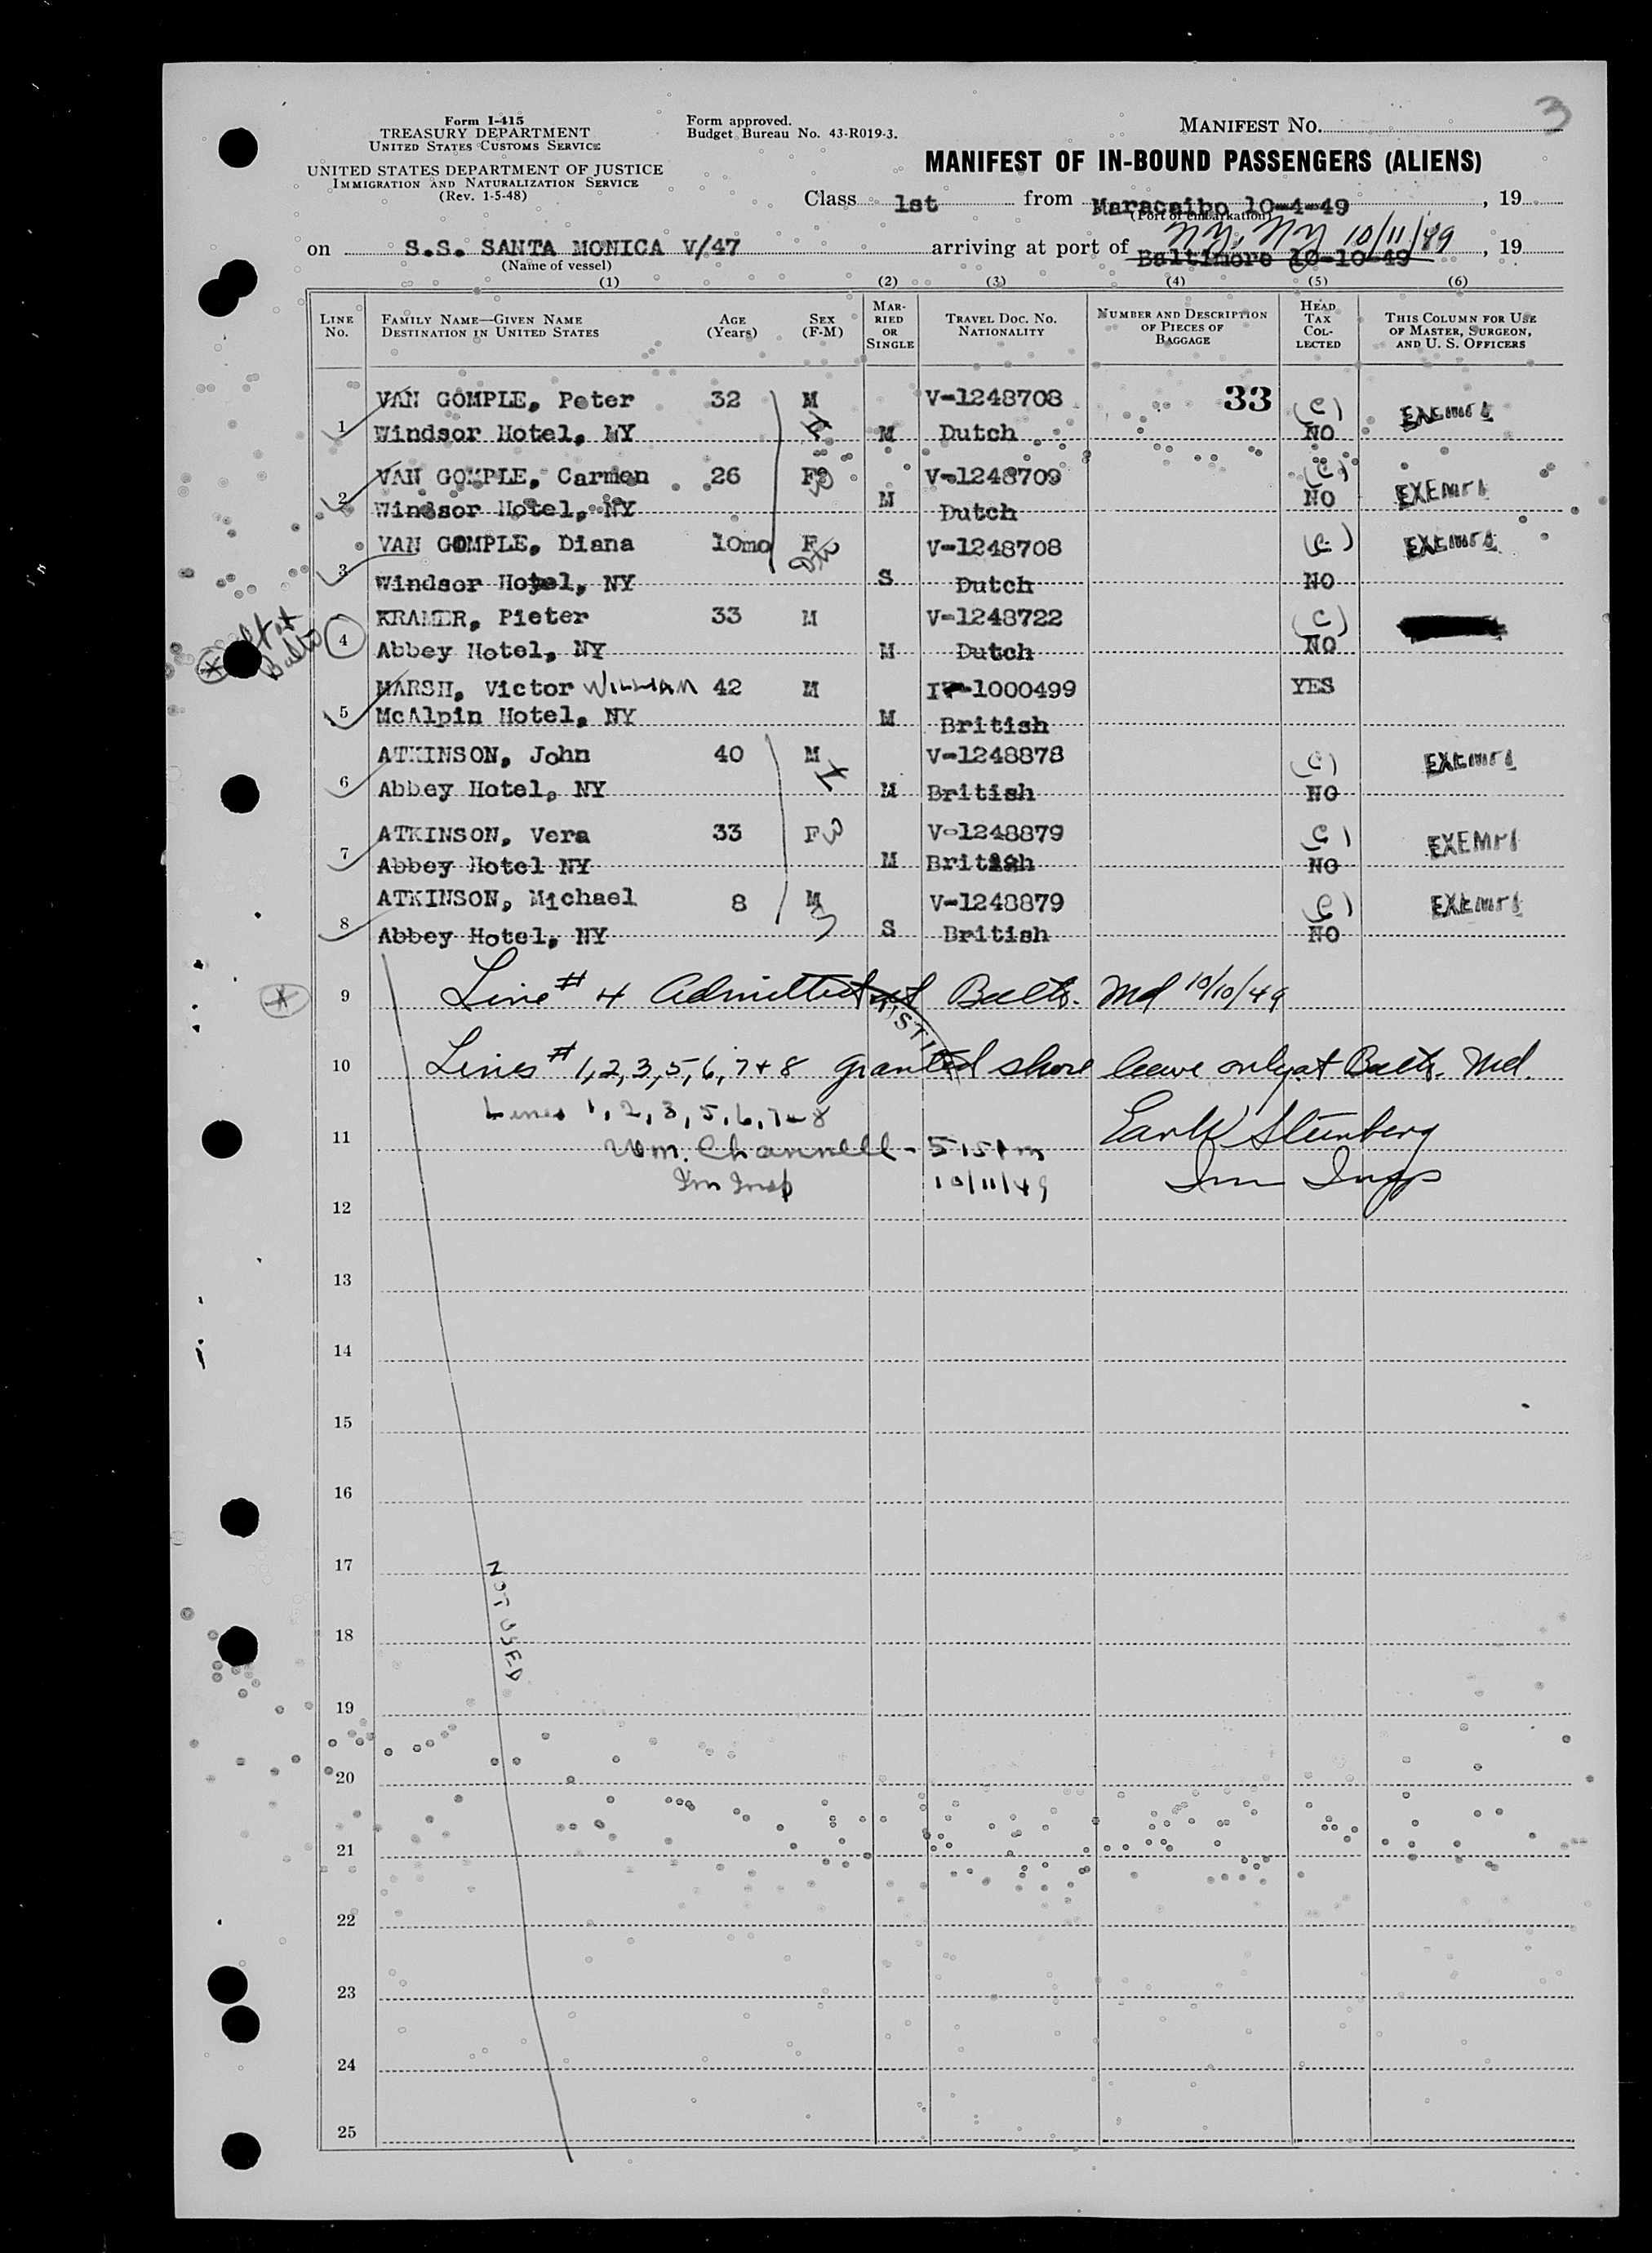 3
Form I-415
TREASURY DEPARTMENT
UNITED STATES CUSTOMS SERVICE
UNITED STATES DEPARTMENT OF JUSTICE
IMMIGRATION AND NATURALIZATION SERVICE
(Rev. 1-5-48)
Form approved.
Budget Bureau No. 43-R019-3.
MANIFEST NO.
MANIFEST OF IN-BOUND PASSENGERS (ALIENS)
Class 1st from Maracaibo 10-4-49, 19
(Port of embarkation)
on S.S. SANTA MONICA V/47 arriving at port of Baltimore 10-10-49 NY, NY 10/11/49, 19
(Name of vessel)
(1) (2) (3) (4) (5) (6)
LINE NO. FAMILY NAME—GIVEN NAME DESTINATION IN UNITED STATES AGE (Years) SEX (F-M) MARRIED OR SINGLE TRAVEL DOC. NO. NATIONALITY NUMBER AND DESCRIPTION OF PIECES OF BAGGAGE HEAD TAX COLLECTED THIS COLUMN FOR USE OF MASTER, SURGEON, AND U. S. OFFICERS
VAN GOMPLE, Peter 32 M V-1248708 33 (C) EXEMPT
1 Windsor Hotel, NY M Dutch NO
VAN GOMPLE, Carmen 26 F V-1248709 (C) EXEMPT
2 Windsor Hotel, NY M Dutch NO
VAN GOMPLE, Diana 10mo F V-1248708 (C) EXEMPT
3 Windsor Hotel, NY S Dutch NO
KRAMER, Pieter 33 M V-1248722 (C)
4 Abbey Hotel, NY M Dutch NO
at Balto
MARSH, Victor WILLIAM 42 M -1000499 YES
5 McAlpin Hotel, NY M British
ATKINSON, John 40 M V-1248878 (C) EXEMPT
6 Abbey Hotel, NY M British NO
ATKINSON, Vera 33 F V-1248879 (C) EXEMPT
7 Abbey Hotel NY M British NO
ATKINSON, Michael 8 M V-1248879 (C) EXEMPT
8 Abbey Hotel, NY S British NO
9 Line #4 Admitted at Balto. Md 10/10/49
10 Lines #1,2,3,5,6,7+8 granted shore leave only at Balto. Md.
Lines 1, 2, 3, 5, 6, 7 - 8
11 Wm. Channell - 515 Pm Earl W Steinberg
Im Insp 10/11/49 Imm Insp
12
13
14
15
16
17
NOT USED
18
19
20
21
22
23
24
25